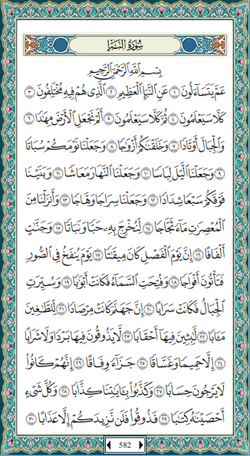 سُورَةُ النَّبَإِ
بِسْمِ اللَّهِ الرَّحْمَٰنِ الرَّحِيمِ
عَمَّ يَتَسَاءَلُونَ ١ عَنِ النَّبَإِ الْعَظِيمِ ٢ الَّذِي هُمْ فِيهِ مُخْتَلِفُونَ ٣
كَلَّا سَيَعْلَمُونَ ٤ ثُمَّ كَلَّا سَيَعْلَمُونَ ٥ أَلَمْ نَجْعَلِ الْأَرْضَ مِهَادًا ٦
وَالْجِبَالَ أَوْتَادًا ٧ وَخَلَقْنَاكُمْ أَزْوَاجًا ٨ وَجَعَلْنَا نَوْمَكُمْ سُبَاتًا
٩ وَجَعَلْنَا اللَّيْلَ لِبَاسًا ١٠ وَجَعَلْنَا النَّهَارَ مَعَاشًا ١١ وَبَنَيْنَا
فَوْقَكُمْ سَبْعًا شِدَادًا ١٢ وَجَعَلْنَا سِرَاجًا وَهَّاجًا ١٣ وَأَنزَلْنَا مِنَ
الْمُعْصِرَاتِ مَاءً ثَجَّاجًا ١٤ لِّنُخْرِجَ بِهِ حَبًّا وَنَبَاتًا ١٥ وَجَنَّاتٍ
أَلْفَافًا ١٦ إِنَّ يَوْمَ الْفَصْلِ كَانَ مِيقَاتًا ١٧ يَوْمَ يُنفَخُ فِي الصُّورِ
فَتَأْتُونَ أَفْوَاجًا ١٨ وَفُتِحَتِ السَّمَاءُ فَكَانَتْ أَبْوَابًا ١٩ وَسُيِّرَتِ
الْجِبَالُ فَكَانَتْ سَرَابًا ٢٠ إِنَّ جَهَنَّمَ كَانَتْ مِرْصَادًا ٢١ لِّلطَّاغِينَ
مَآبًا ٢٢ لَّابِثِينَ فِيهَا أَحْقَابًا ٢٣ لَّا يَذُوقُونَ فِيهَا بَرْدًا وَلَا شَرَابًا
٢٤ إِلَّا حَمِيمًا وَغَسَّاقًا ٢٥ جَزَاءً وِفَاقًا ٢٦ إِنَّهُمْ كَانُوا
لَا يَرْجُونَ حِسَابًا ٢٧ وَكَذَّبُوا بِآيَاتِنَا كِذَّابًا ٢٨ وَكُلَّ شَيْءٍ
أَحْصَيْنَاهُ كِتَابًا ٢٩ فَذُوقُوا فَلَن نَّزِيدَكُمْ إِلَّا عَذَابًا ٣٠
582